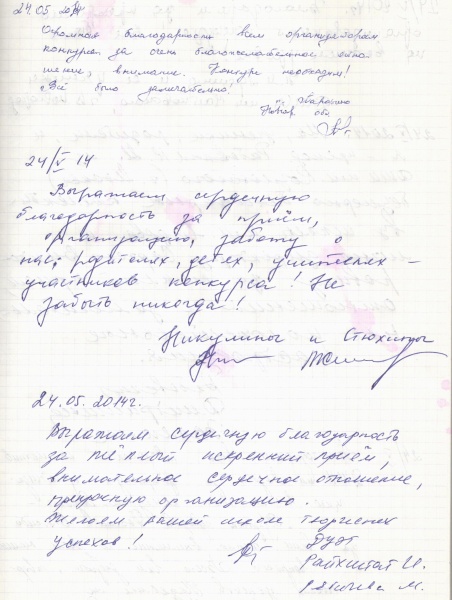 24.05.2014
Огромная благодарность всем организаторам
конкурса за очень благожелательное отно
шение, внимание. Конкурс необходим!
Всё было замечательно!
24/V 14
Выражаем сердечную
благодарность за приём,
организацию, заботу о
нас, родителях, детях, учителях –
участников конкурса! Не
забыть никогда!
Никулины и Стюхины
24.05.2014г.
Выражаем сердечную благодарность
за тёплый искренний приём,
внимательное сердечное отношение,
прекрасную организацию.
Желаем вашей школе творческих
успехов!
Дуэт
Райхштат И.
М.